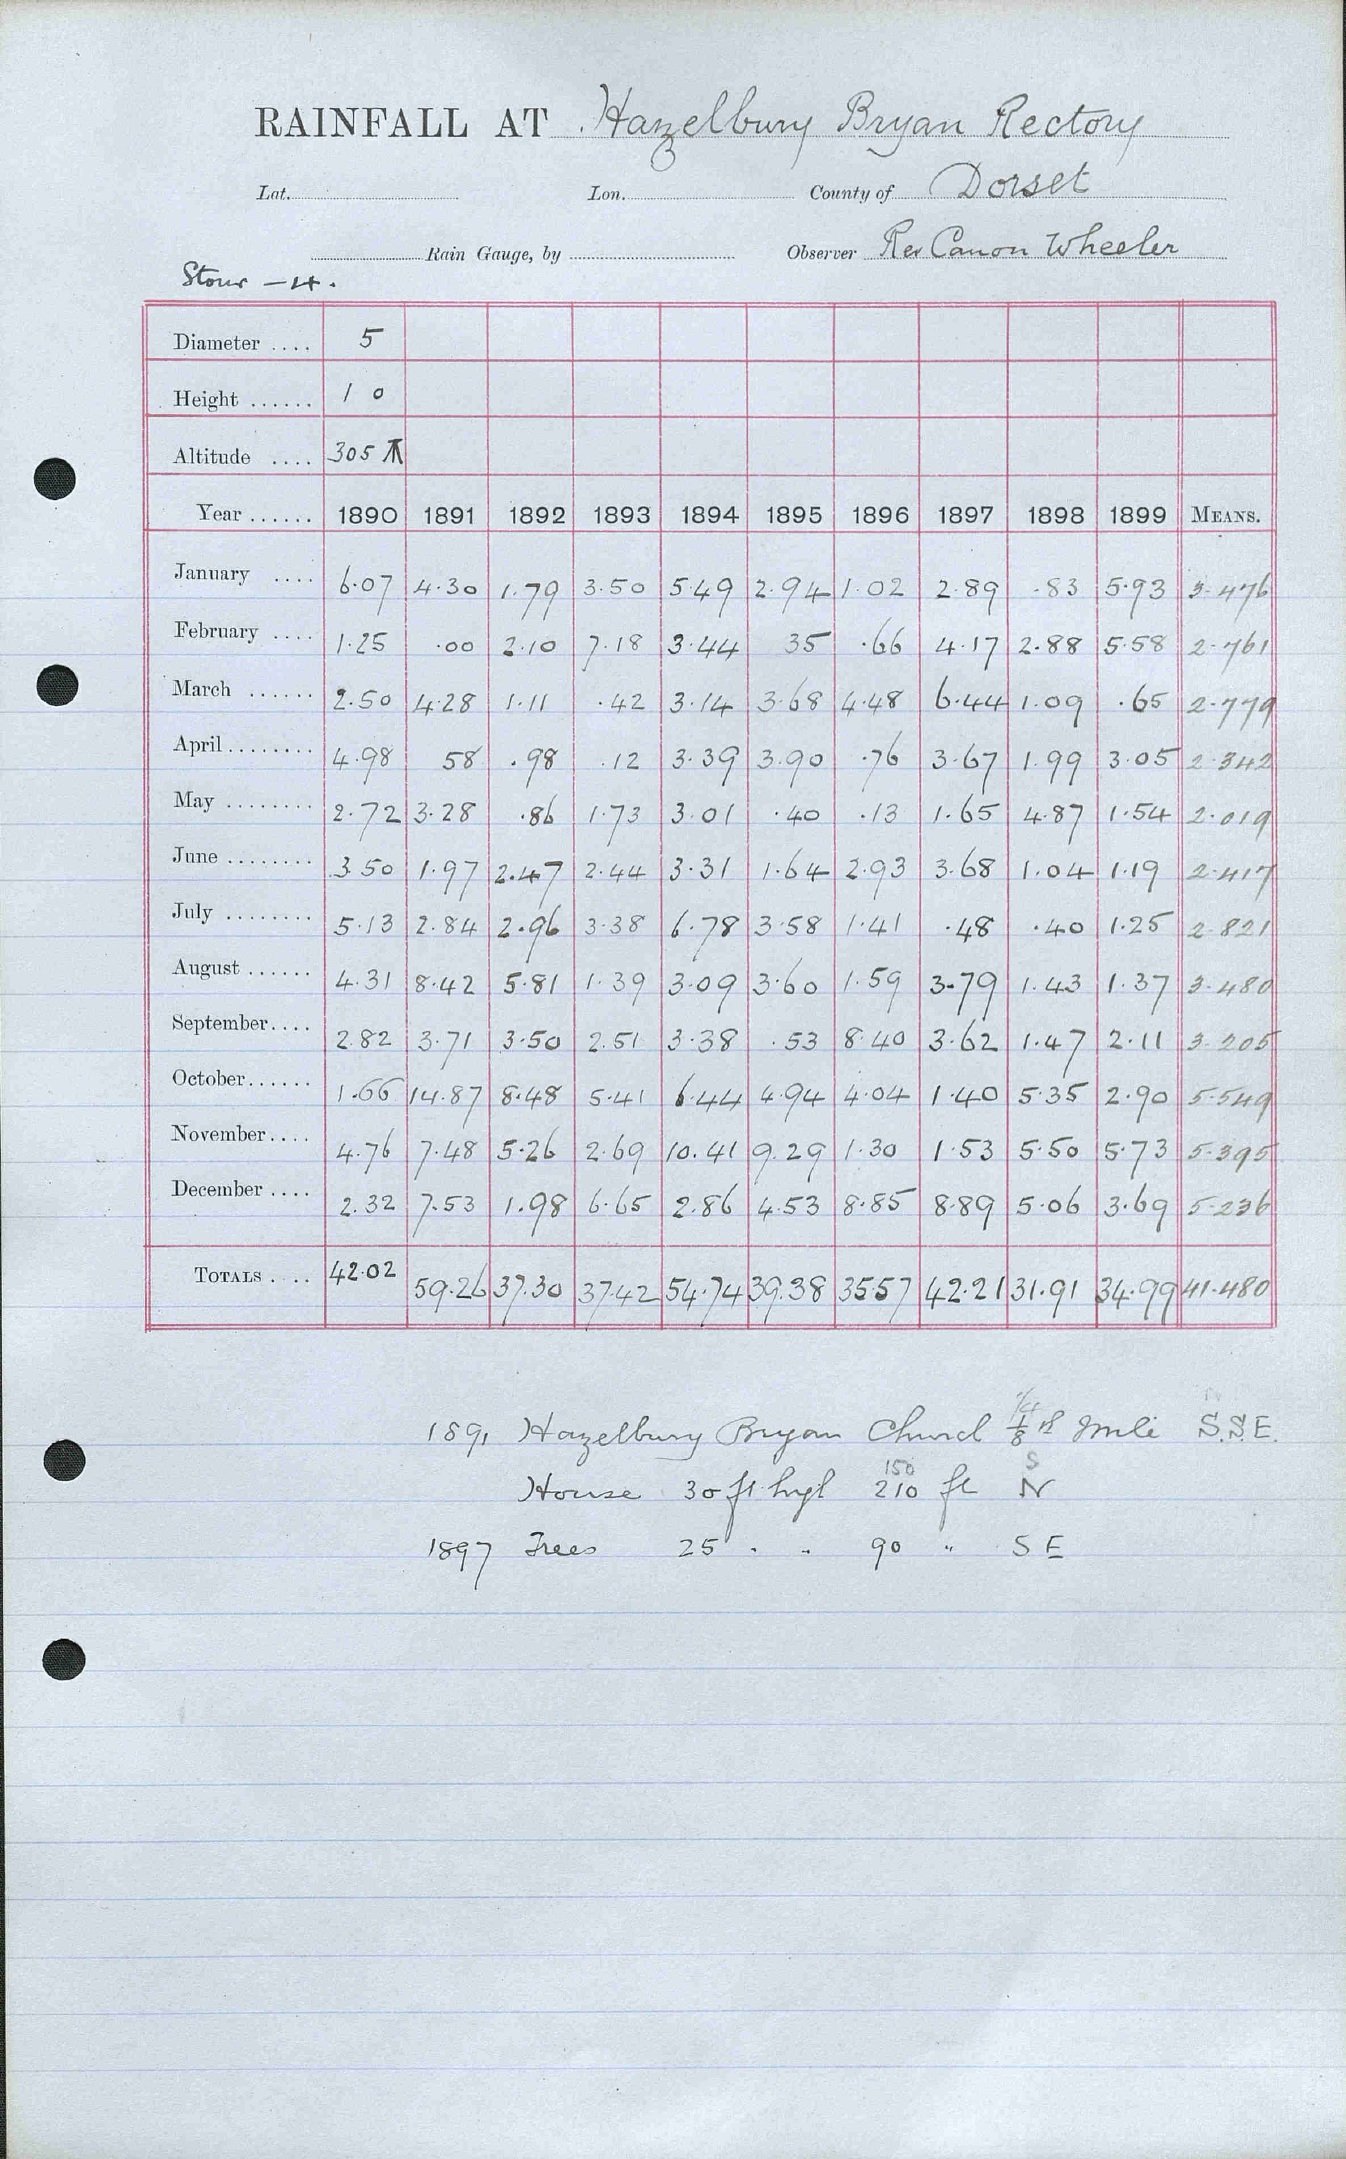 RAINFALL AT Hazelbury Bryan Rectory
Lat. Lon. County of Dorset
Rain Gauge, by Observer Rev Canon Wheeler
Stour - 4.
Diameter .... 5
Height ...... 1 0
Altitude .... 305
Year ...... 1890 1891 1892 1893 1894 1895 1896 1897 1898 1899 MEANS.
January .... 6.07 4.30 1.79 3.50 5.49 2.94 1.02 2.89 .83 5.93 3.476
February .... 1.25 .00 2.10 7.18 3.44 35 .66 4.17 2.88 5.58 2.761
March ...... 2.50 4.28 1.11 .42 3.14 3.68 4.48 6.44 1.09 .65 2.779
April ........ 4.98 58 .98 .12 3.39 3.90 .76 3.67 1.99 3.05 2.342
May ........ 2.72 3.28 .86 1.73 3.01 .40 .13 1.65 4.87 1.54 2.019
June ........ 3.50 1.97 2.47 2.44 3.31 1.64 2.93 3.68 1.04 1.19 2.417
July ........ 5.13 2.84 2.96 3.38 6.78 3.58 1.41 .48 .40 1.25 2.821
August ...... 4.31 8.42 5.81 1.39 3.09 3.60 1.59 3.79 1.43 1.37 3.480
September.... 2.82 3.71 3.50 2.51 3.38 .53 8.40 3.62 1.47 2.11 3.205
October...... 1.66 14.87 8.48 5.41 6.44 4.94 4.04 1.40 5.35 2.90 5.549
November.... 4.76 7.48 5.26 2.69 10.41 9.29 1.30 1.53 5.50 5.73 5.395
December .... 2.32 7.53 1.98 6.65 2.86 4.53 8.85 8.89 5.06 3.69 5.236
TOTALS .... 42.02 59.26 37.30 37.42 54.74 39.38 35.57 42.21 31.91 34.99 41.480
1/4
1891 Hazelbury Bryan Church 1/8 of mile S.S.E.
150 S
House 30 ft high 210 ft N
1897 Trees 25 " " 90 " S E